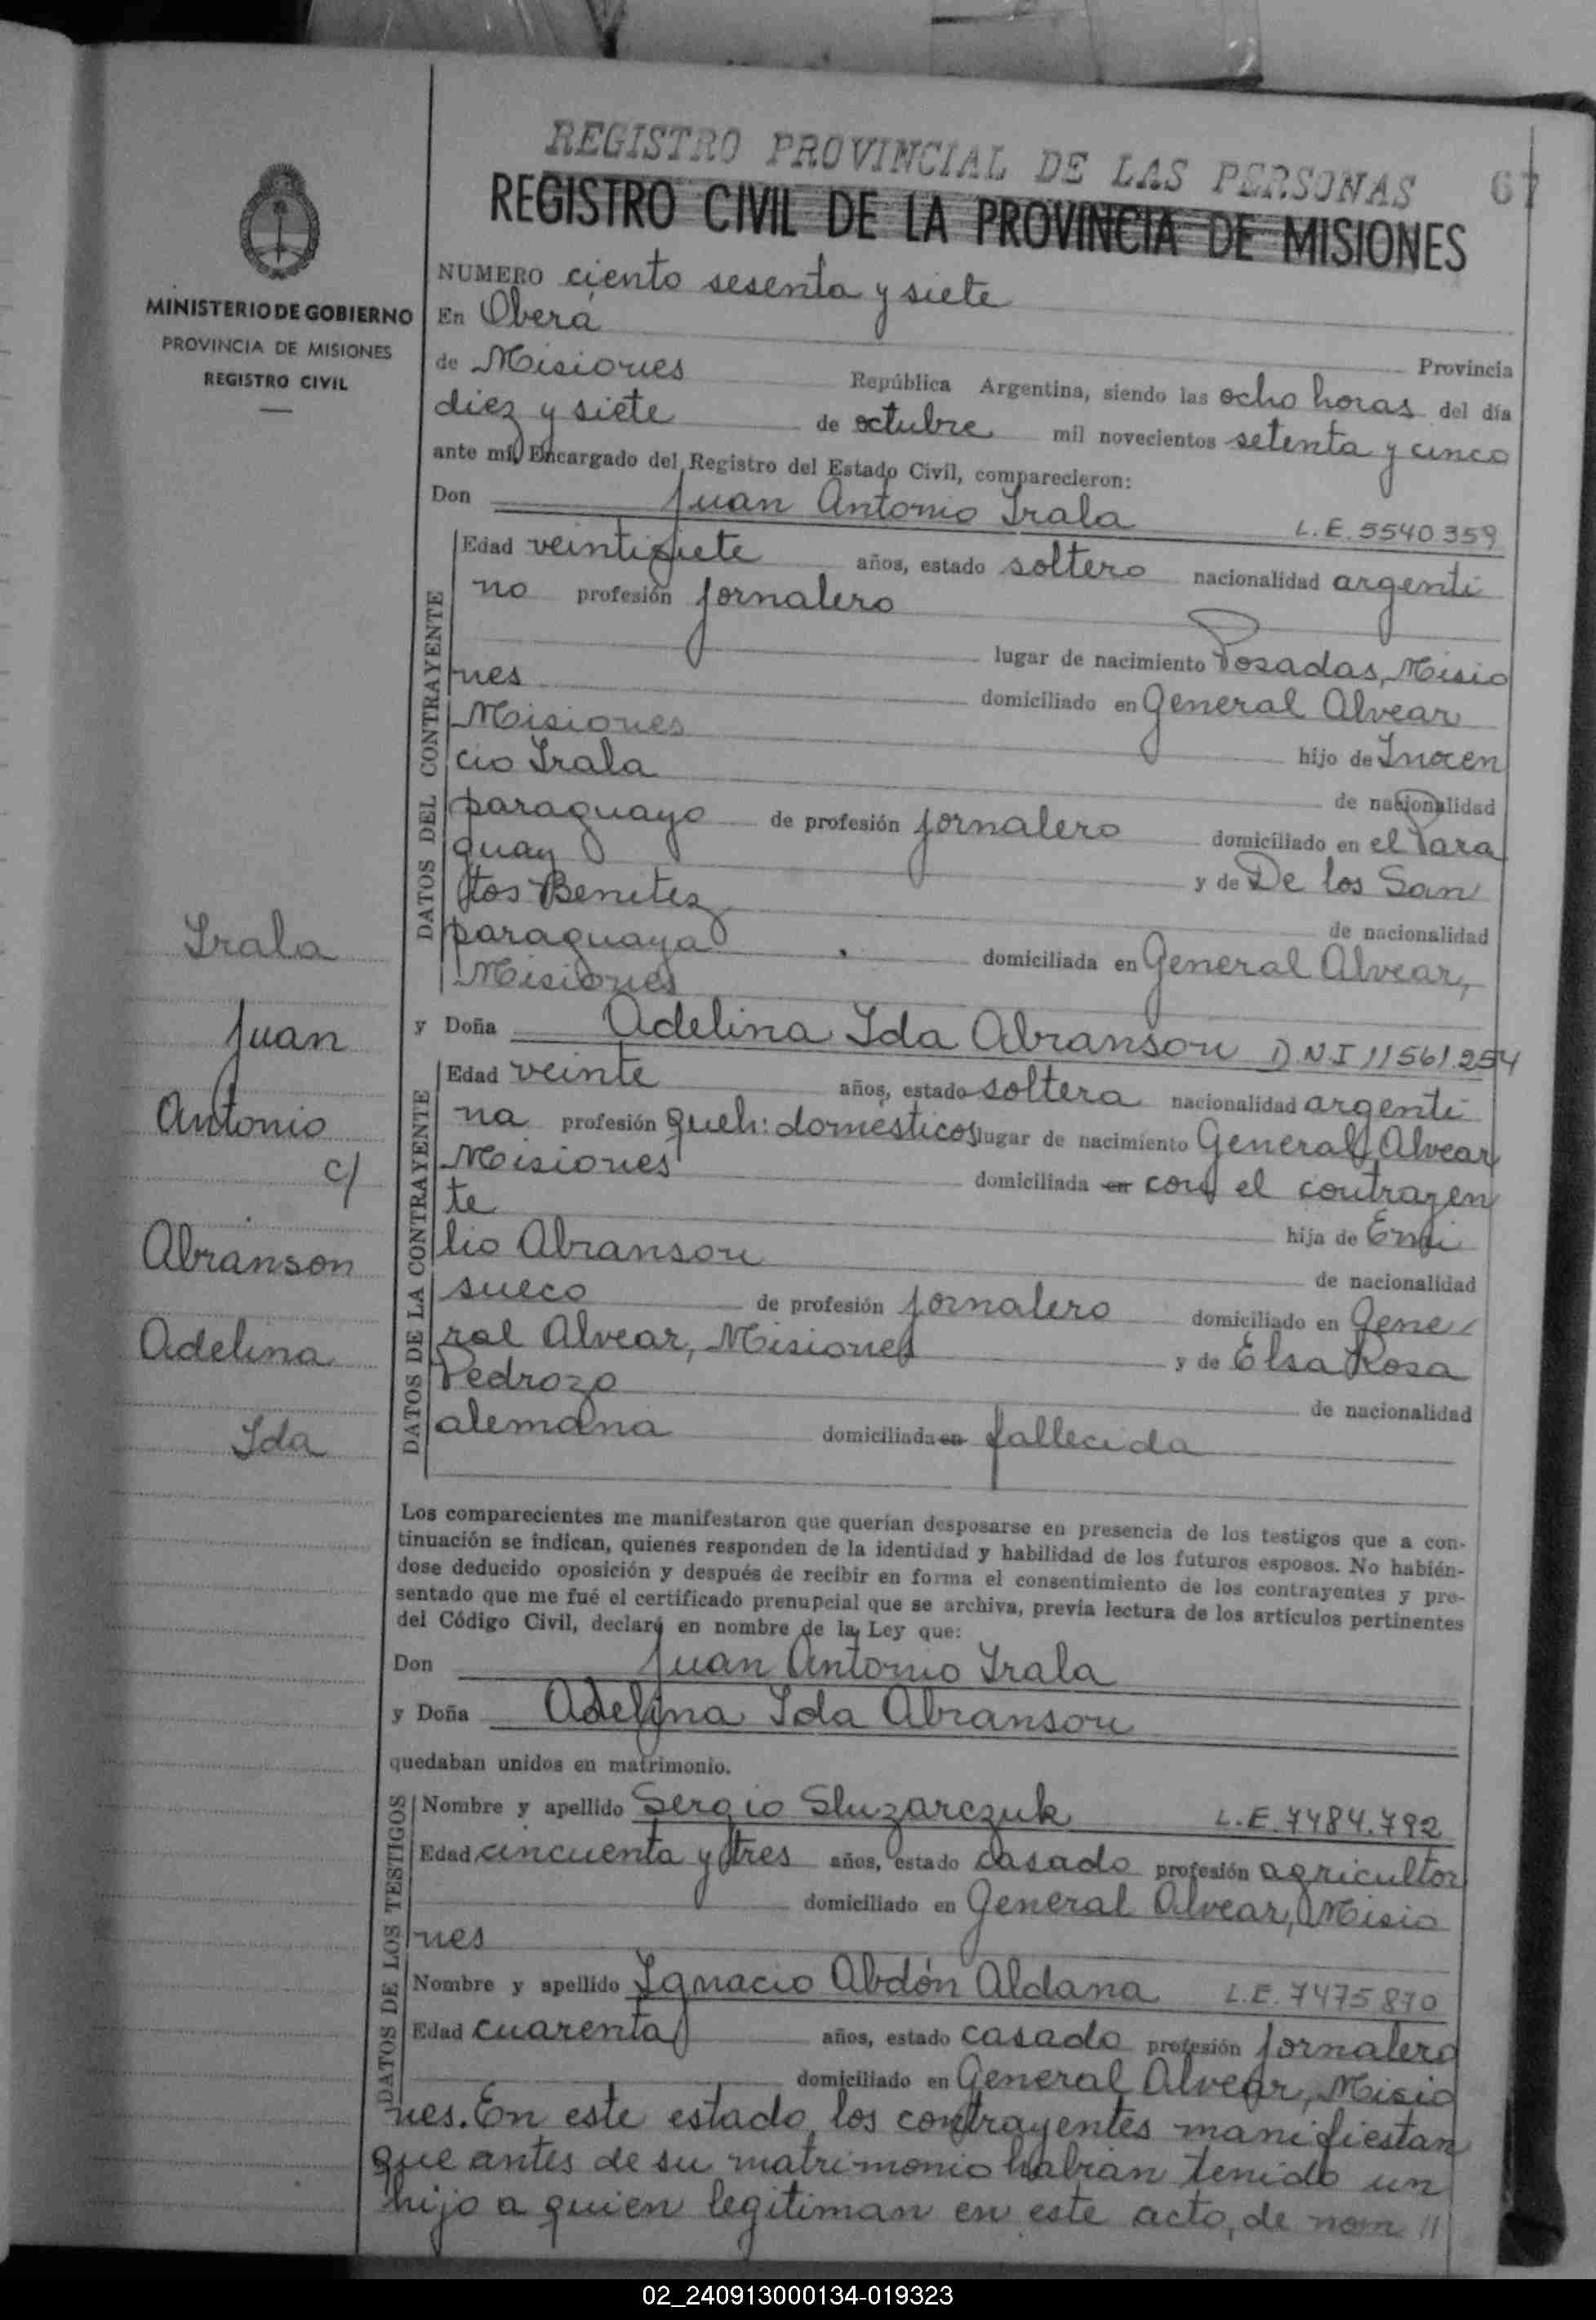 REGISTRO PROVINCIAL DE LAS PERSONAS 67
REGISTRO CIVIL DE LA PROVINCIA DE MISIONES
MINISTERIO DE GOBIERNO
PROVINCIA DE MISIONES
REGISTRO CIVIL
NUMERO ciento sesenta y siete
En Oberá Provincia
de Misiones República Argentina, siendo las ocho horas del día
diez y siete de octubre mil novecientos setenta y cinco
ante mí, Encargado del Registro del Estado Civil, comparecieron:
Don Juan Antonio Irala L.E. 5540.359
DATOS DEL CONTRAYENTE
Edad veintisiete años, estado soltero nacionalidad argenti
no profesión jornalero
lugar de nacimiento Posadas, Misio
nes domiciliado en General Alvear
Misiones hijo de Inocen
cio Irala de nacionalidad
paraguayo de profesión jornalero domiciliado en el Para
guay y de De los San
tos Benitez de nacionalidad
paraguaya domiciliada en General Alvear,
Misiones
y Doña Adelina Ida Abranson D.N.I 11561.254
DATOS DE LA CONTRAYENTE
Edad veinte años, estado soltera nacionalidad argenti
na profesión queh: domésticos lugar de nacimiento General Alvear
Misiones domiciliada en con el contrayen
te hija de Emi
lio Abranson de nacionalidad
sueco de profesión jornalero domiciliado en Gene
ral Alvear, Misiones y de Elsa Rosa
Pedrozo de nacionalidad
alemana domiciliada en fallecida
Irala
Juan
Antonio
c/
Abranson
Adelina
Ida
Los comparecientes me manifestaron que querían desposarse en presencia de los testigos que a con-
tinuación se indican, quienes responden de la identidad y habilidad de los futuros esposos. No habién-
dose deducido oposición y después de recibir en forma el consentimiento de los contrayentes y pre-
sentado que me fué el certificado prenupcial que se archiva, previa lectura de los artículos pertinentes
del Código Civil, declaré en nombre de la Ley que:
Don Juan Antonio Irala
y Doña Adelina Ida Abranson
quedaban unidos en matrimonio.
DATOS DE LOS TESTIGOS
Nombre y apellido Sergio Sluzarczuk L.E. 7484.792
Edad cincuenta y tres años, estado casado profesión agricultor
domiciliado en General Alvear, Misio
nes
Nombre y apellido Ignacio Abdón Aldana L.E. 7475870
Edad cuarenta años, estado casado profesión jornalero
domiciliado en General Alvear, Misio
nes. En este estado los contrayentes manifiestan
que antes de su matrimonio habían tenido un
hijo a quien legitiman en este acto, de nom //
02_240913000134-019323